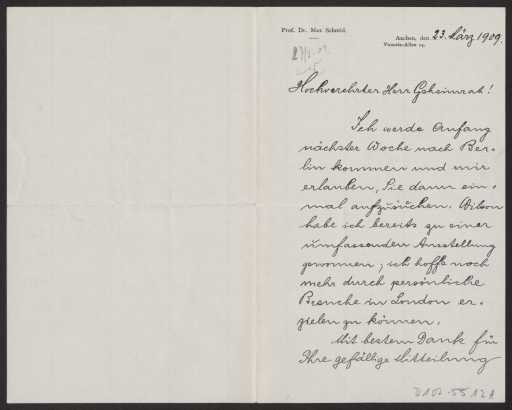 Prof. Dr. Max Schmid.
Aachen, den 23. März 1909.
27/3.09.
Hochverehrter Herr Geheimrat!
Ich werde Anfang
nächster Woche nach Ber-
lin kommen und mir
erlauben, Sie dann ein-
mal aufzusuchen. Wilson
habe ich bereits zu einer
umfassenden Ausstellung
gewonnen; ich hoffe noch
mehr durch persönliche
Besuche in London er-
zielen zu können.
Mit bestem Dank für
Ihre gefällige Mitteilung